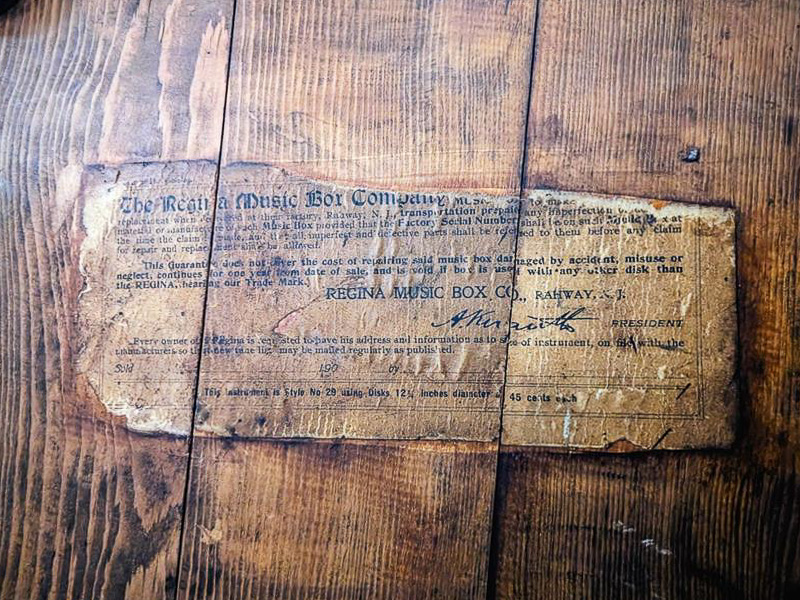 The Regina Music Box Company to make
replacement when at their factory, Rahway, N. J., transportation prepaid any imperfection
material or of such Music Box provided that the Factory Serial Number shall be on such Music Box at
the time the claim is made, and all imperfect and defective parts shall be to them before any claim
for repair and replacement be allowed.
This Guarantee does not cover the cost of repairing said music box damaged by accident, misuse or
neglect, continues for one year from date of sale, and is void if box is used with any other disk than
the REGINA, bearing our Trade Mark.
REGINA MUSIC BOX CO., RAHWAY, N. J.
PRESIDENT
Every owner of a Regina is requested to have his address and information as to size of instrument, on file with the
manufacturers so that new tune lists may be mailed regularly as published.
Sold 190 by
This instrument is Style No 29 using Disks 12¼ inches diameter 45 cents each